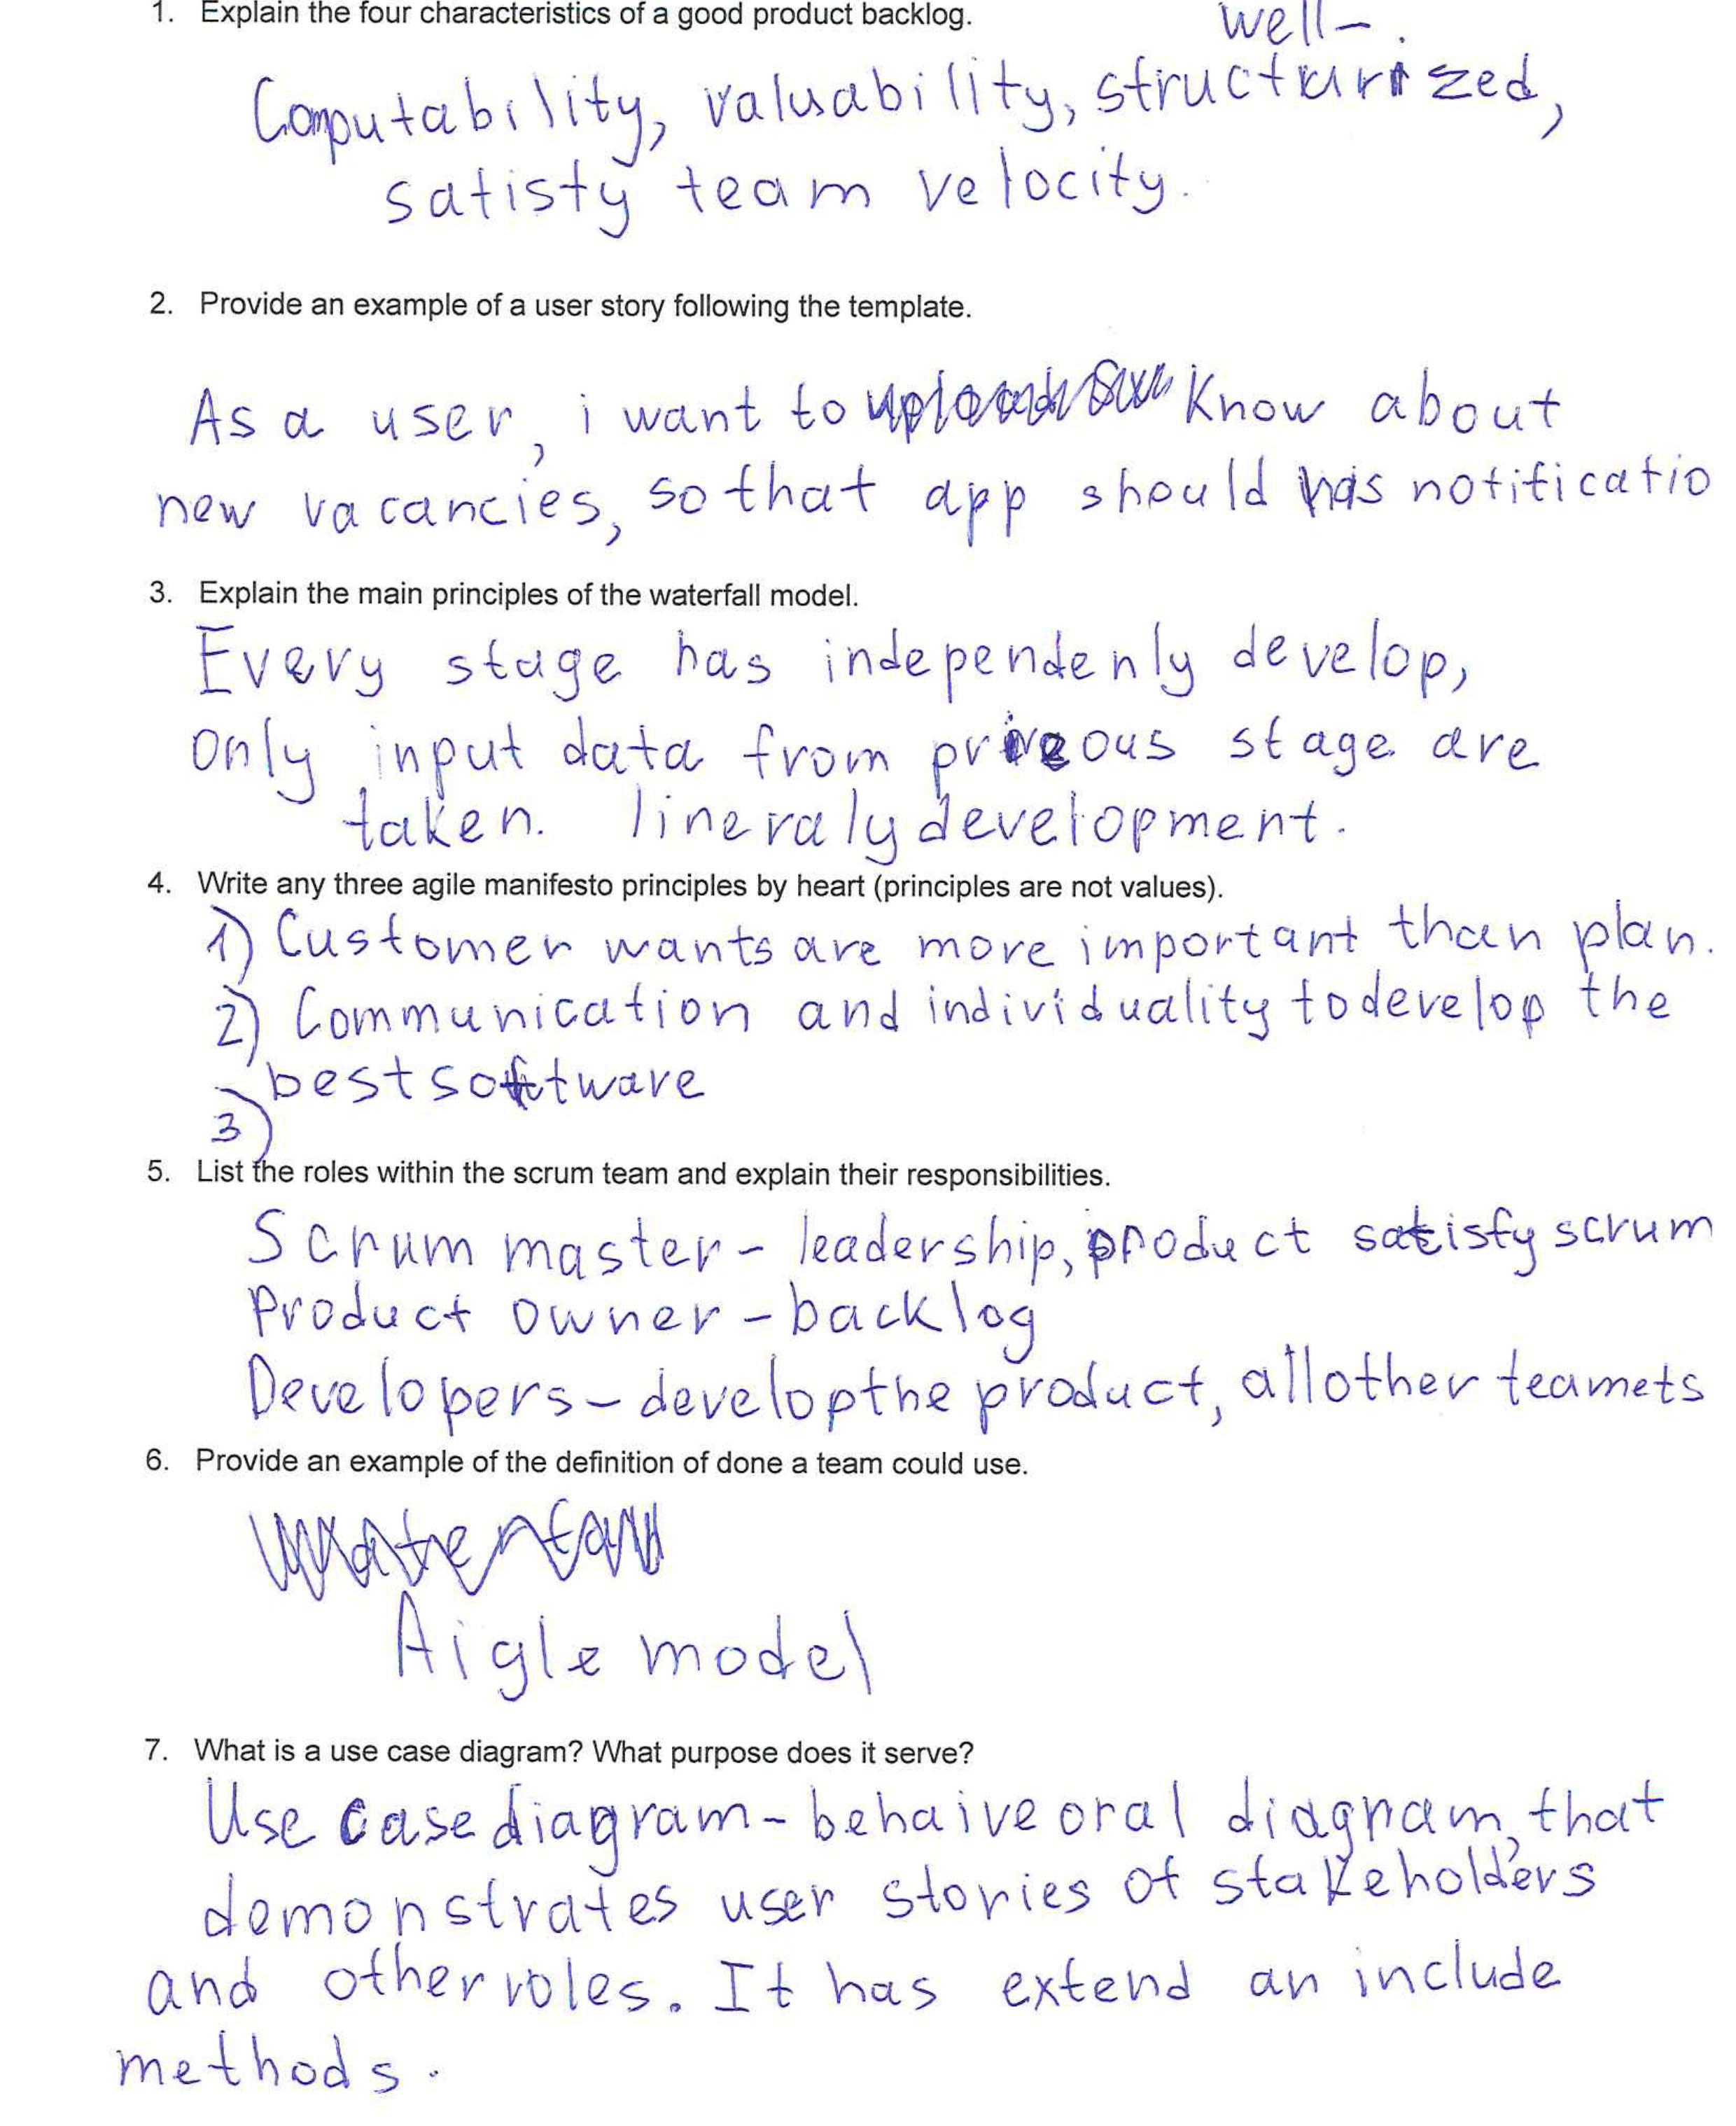 1. Explain the four characteristics of a good product backlog.
well-
Computability, valuability, structurized,
satisty team velocity.
2. Provide an example of a user story following the template.
As a user, i want to know about
new vacancies, so that app should has notificatio
3. Explain the main principles of the waterfall model.
Every stage has independenly develop,
only input data from priveous stage are
taken. lineraly development.
4. Write any three agile manifesto principles by heart (principles are not values).
1) Customer wants are more important than plan.
2) Communication and individuality to develop the
best software
3)
5. List the roles within the scrum team and explain their responsibilities.
Scrum master - leadership, product satisfy scrum
Product owner - backlog
Developers - develop the product, all other teamets
6. Provide an example of the definition of done a team could use.
Aigle model
7. What is a use case diagram? What purpose does it serve?
Use case diagram - behaiveoral diagram, that
demonstrates user stories of stakeholders
and other roles. It has extend an include
methods.